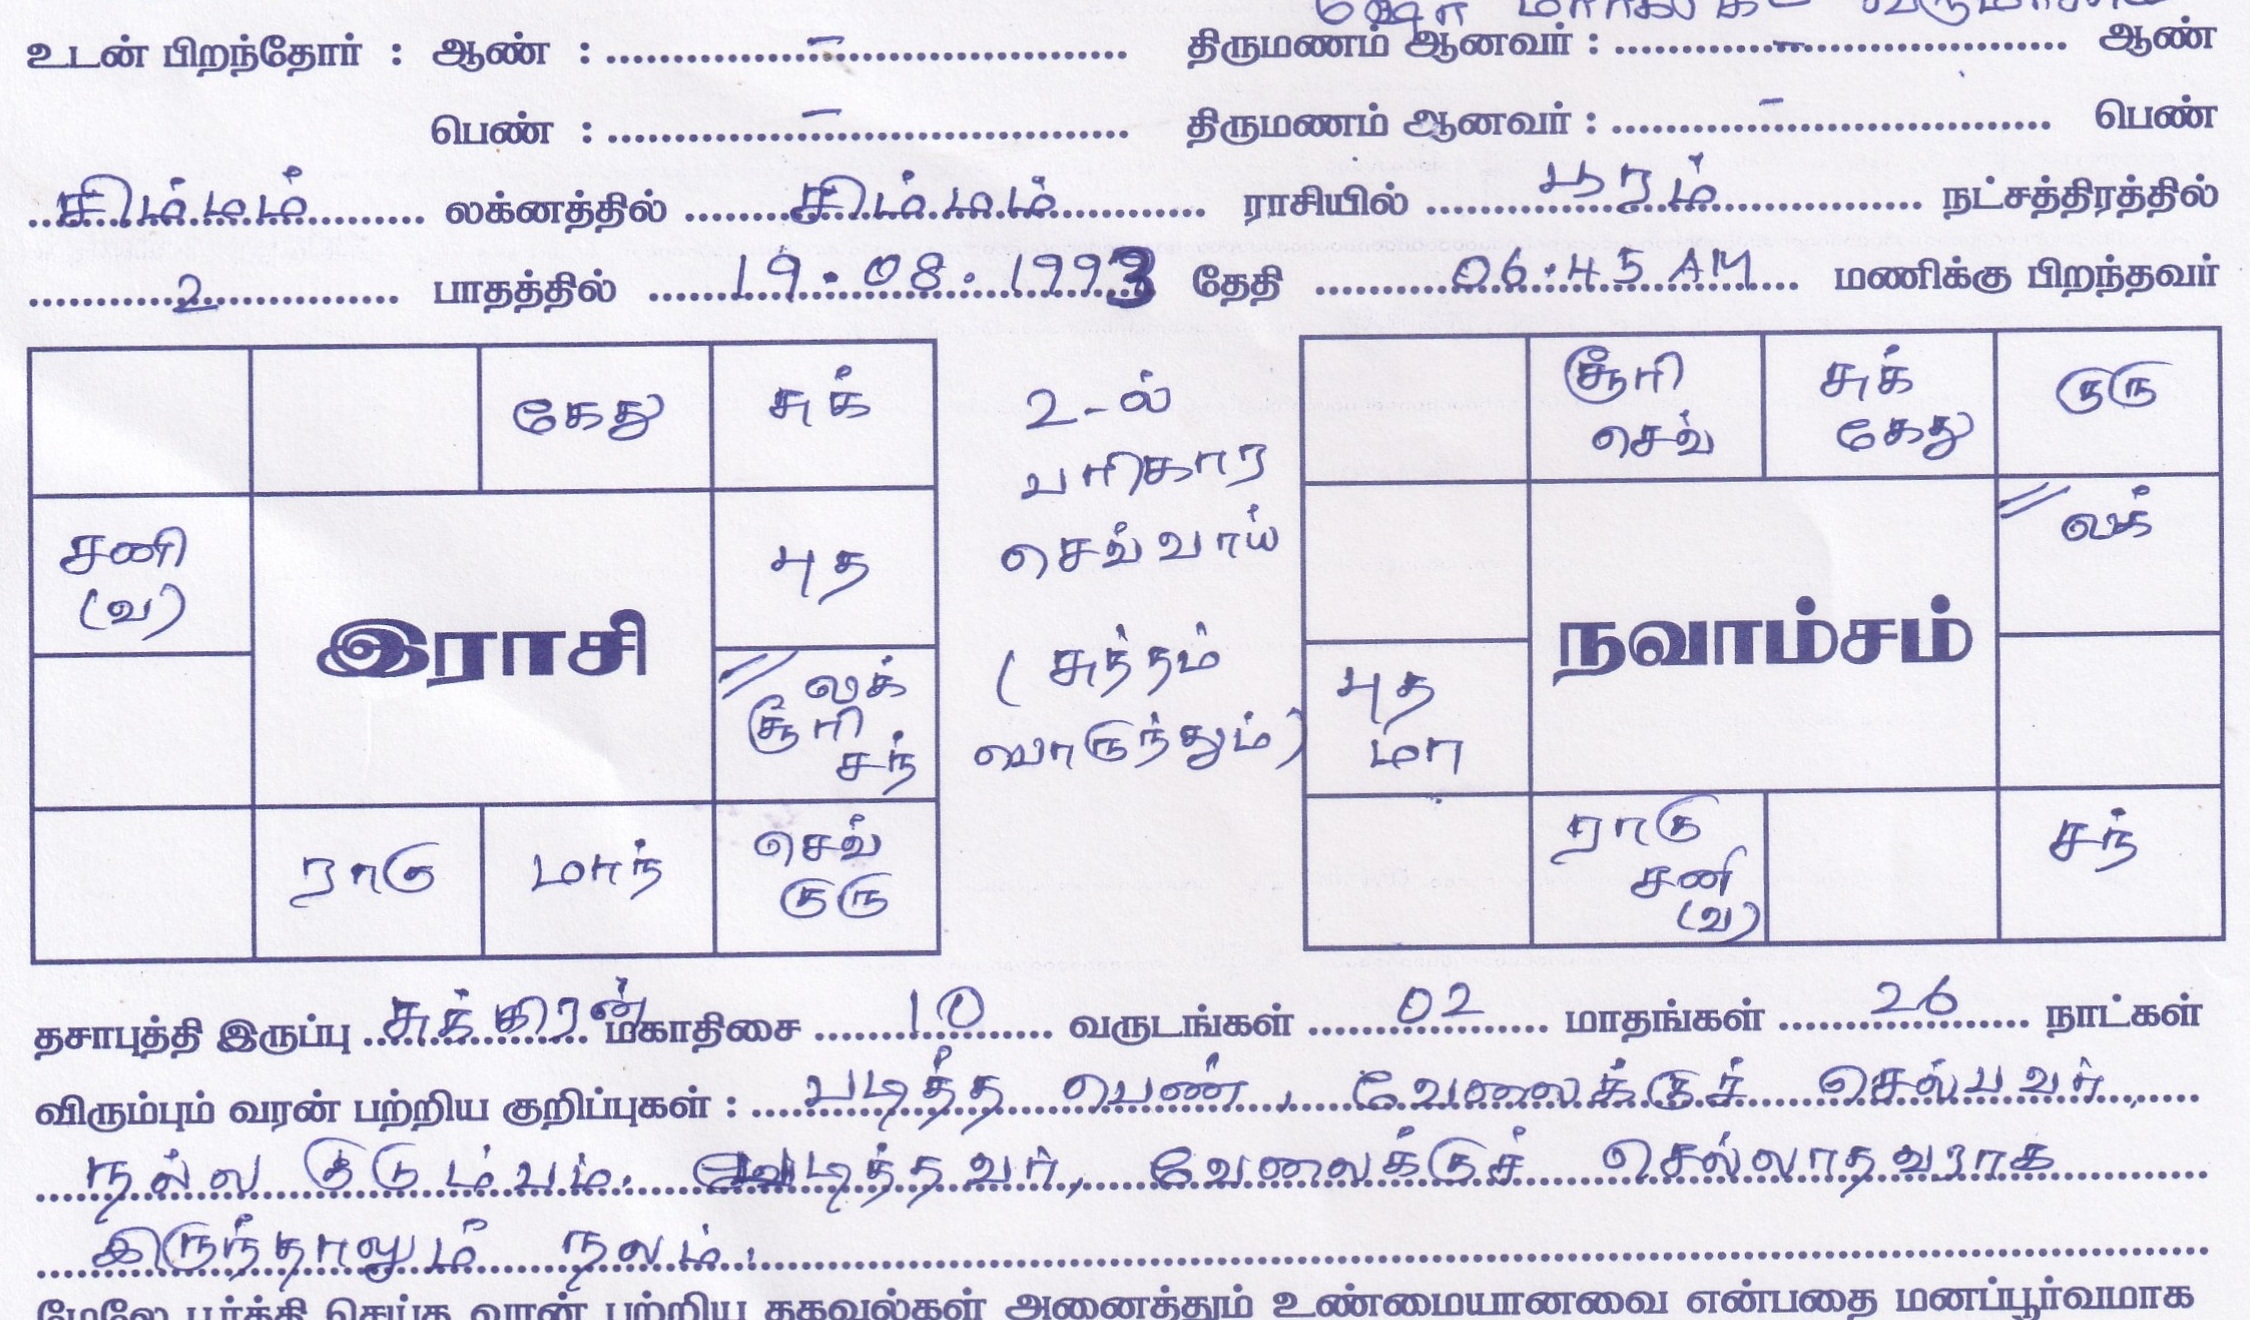 உடன் பிறந்தோர் : ஆண் : ........ – ........ திருமணம் ஆனவர் : ........ – ........ ஆண்
பெண் : ........ – ........ திருமணம் ஆனவர் : ........ – ........ பெண்
சிம்மம் லக்னத்தில் சிம்மம் ராசியில் பூரம் நட்சத்திரத்தில்
2 பாதத்தில் 19.08.1993 தேதி 06.45 AM மணிக்கு பிறந்தவர்
கேது சுக்
சனி (வ)
புத
இராசி
லக் சூரி சந்
ராகு மாந் செவ் குரு
2-ல்
பரிகார
செவ்வாய்
(சுத்தம்
பொருந்தும்)
சூரி செவ் சுக் கேது குரு
லக்
நவாம்சம்
புத மா
ராகு சனி (வ) சந்
தசாபுத்தி இருப்பு சுக்கிரன் மகாதிசை 10 வருடங்கள் 02 மாதங்கள் 26 நாட்கள்
விரும்பும் வரன் பற்றிய குறிப்புகள் : படித்த பெண், வேலைக்குச் செல்பவர்,
நல்ல குடும்பம். படித்தவர், வேலைக்குச் செல்லாதவராக
இருந்தாலும் நலம்.
மேலே பூர்த்தி செய்த வரன் பற்றிய தகவல்கள் அனைத்தும் உண்மையானவை என்பதை மனப்பூர்வமாக